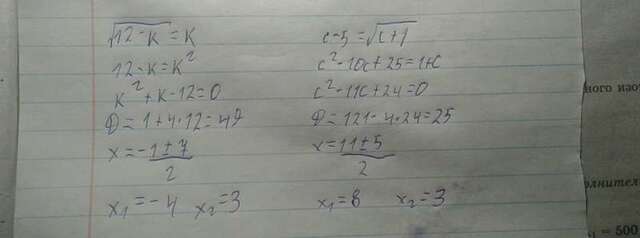 √12-k = k
12-k=k²
k²+k-12=0
D=1+4·12=49
x=-1±7/2
x₁=-4 x₂=3
c-5=√c+1
c²-10c+25=1+c
c²-11c+24=0
D=121-4·24=25
x=11±5/2
x₁=8 x₂=3
ного изо
олнител
= 500